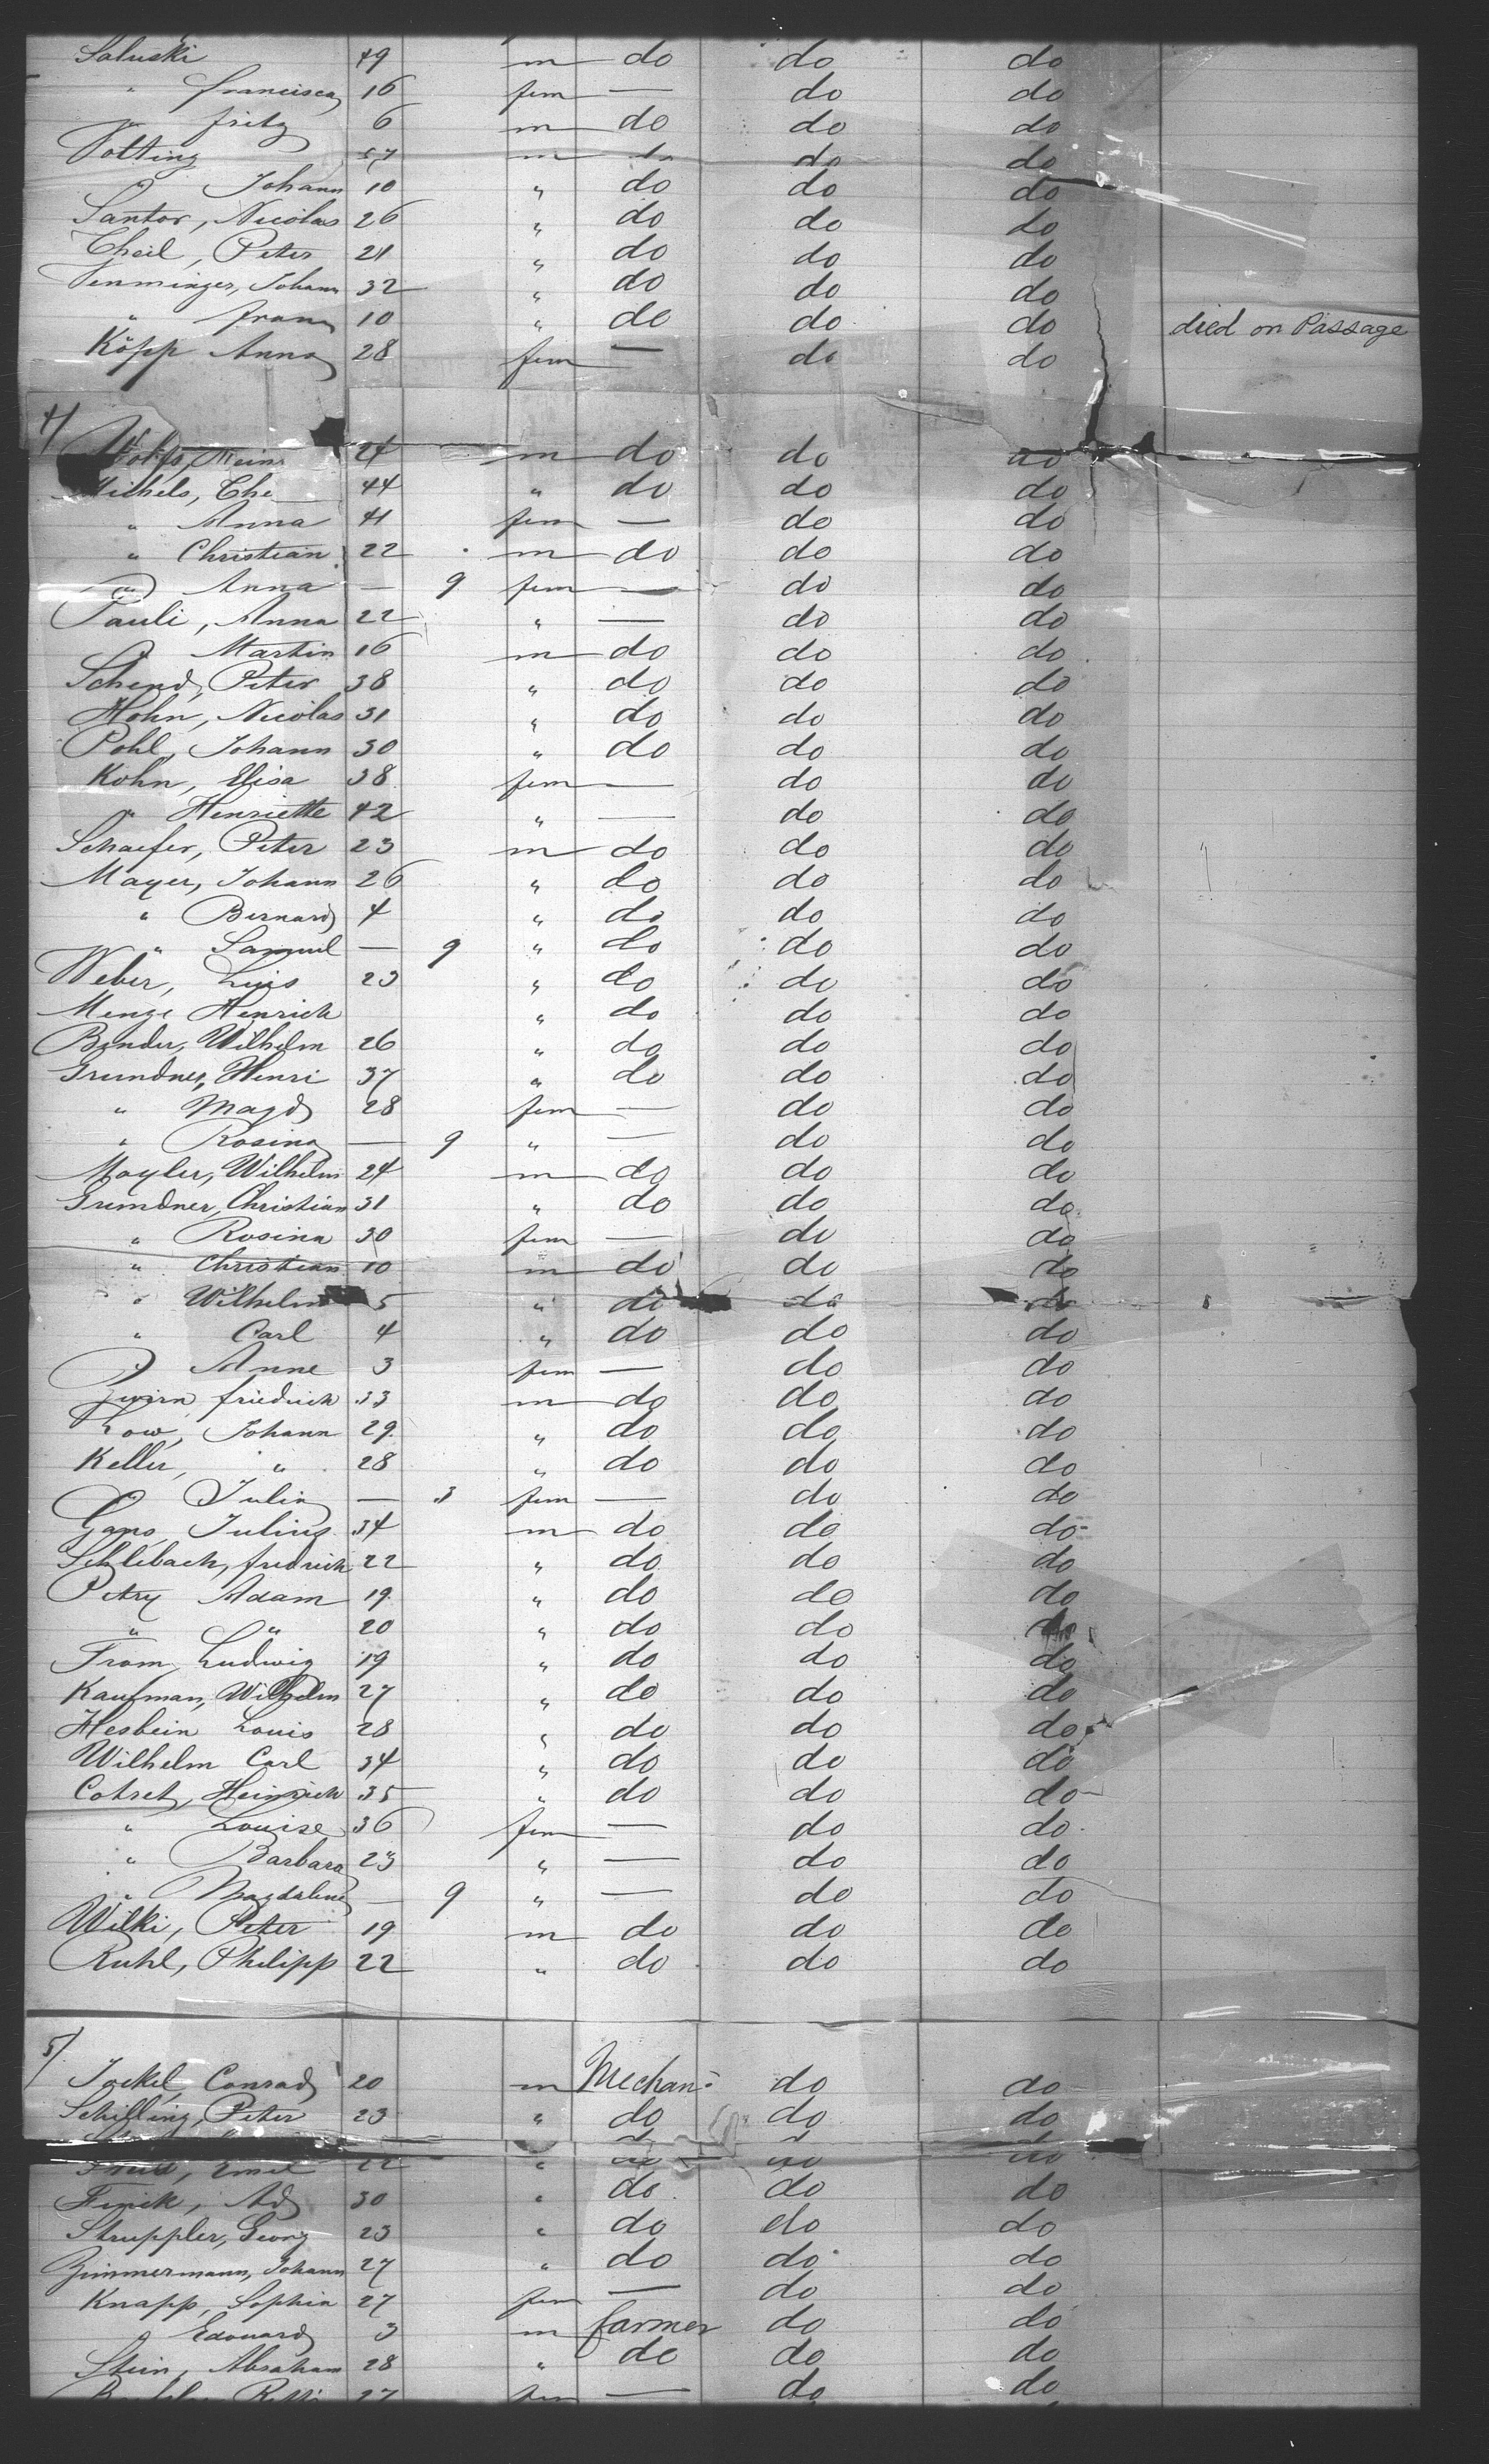 Saluski 49 m do do do
" Francisca 16 fem — do do
" Fritz 6 m do do do
Votting 57 m do do do
" Johann 10 " do do do
Santor, Nicolas 26 " do do do
Theil, Peter 21 " do do do
Venminger, Johann 32 " do do do
" Franz 10 " do do do died on Passage
Köpp Anna 28 fem — do do
4/
24 m do do do
Michels, Che 44 " do do do
" Anna 41 fem — do do
" Christian 22 m do do do
" Anna — 9 fem — do do
Pauli, Anna 22 " — do do
" Martin 16 m do do do
Schend, Peter 38 " do do do
Hohn, Nicolas 31 " do do do
Pohl, Johann 30 " do do do
Kohn, Elisa 38 fem — do do
" Henriette 42 " — do do
Schaefer, Peter 23 m do do do
Mayer, Johann 26 " do do do
" Bernard 4 " do do do
" Samuel — 9 " do do do
Weber, Luis 23 " do do do
Menge Henrich " do do do
Bender, Wilhelm 26 " do do do
Grundner, Henri 37 " do do do
" Magd 28 fem — do do
" Rosina — 9 " — do do
Mayler, Wilhelm 24 m do do do
Grundner, Christian 31 " do do do
" Rosina 30 fem — do do
" Christian 10 m do do do
" Wilhelm 5 " do do do
" Carl 4 " do do do
" Anne 3 fem — do do
Zwirn Friedrich 33 m do do do
Low, Johann 29 " do do do
Keller, " 28 " do do do
" Julia — 3 fem — do do
Gans, Julius 34 m do do do
Schlebach, Fredrich 22 " do do do
Petry Adam 19 " do do do
" " 20 " do do do
From, Ludwig 19 " do do do
Kaufman, Wilhelm 27 " do do do
Hesbein Louis 28 " do do do
Wilhelm Carl 34 " do do do
Cotret, Heinrich 35 " do do do
" Louise 36 fem — do do
" Barbara 23 " — do do
" Magdalena — 9 " — do do
Wilki, Peter 19 m do do do
Ruhl, Philipp 22 " do do do
5/
Jockel, Conrad 20 m Mechan: do do
Schilling, Peter 23 " do do do
Emil 22 " do do do
Finik, Ad 30 " do do do
Struppler, Georg 23 " do do do
Zimmermann, Johann 27 " do do do
Knapp, Sophia 27 fem — do do
" Edouard 3 m farmer do do
Stein, Abraham 28 " do do do
27 fem — do do